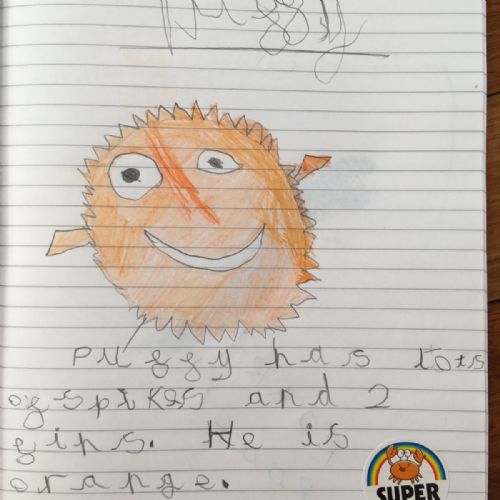 Puffy
Puffy has lots
of spikes and 2
fins. He is
orange.
SUPER